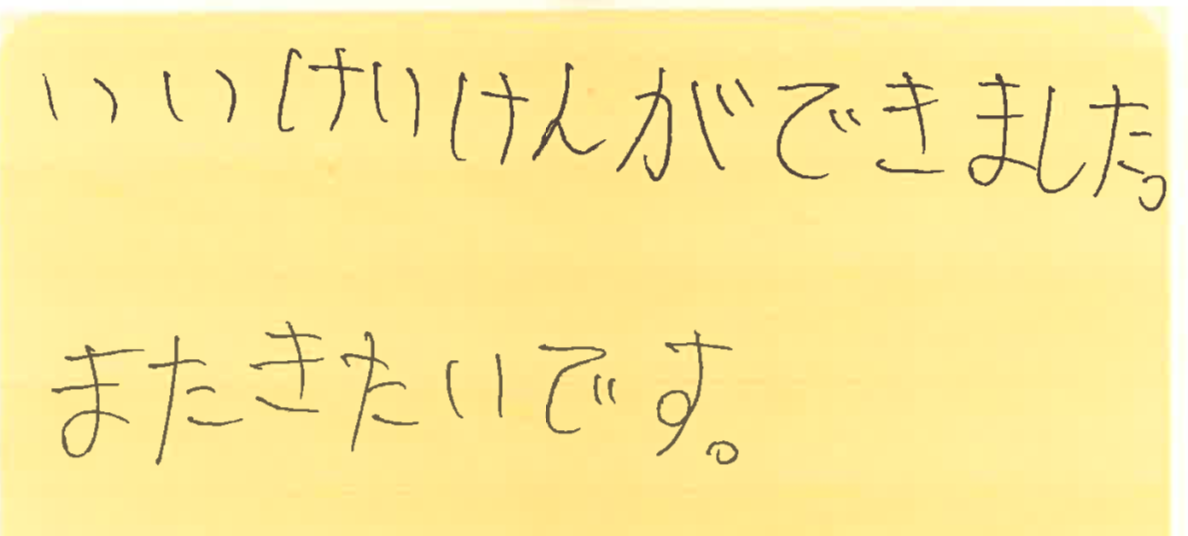 いいけいけんができました。
またきたいです。